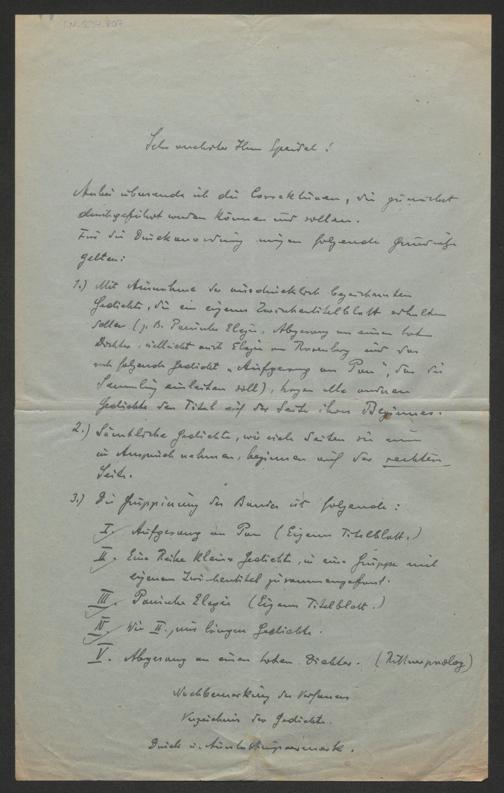 I.N. 237.807
Sehr verehrter Herr Speidel!
Anbei übersende ich die Correkturen, die zunächst
durchgeführt werden können und sollen.
Für die Druckanordnung mögen folgende Grundsätze
gelten:
1.) Mit Ausnahme der ausdrücklich bezeichneten
Gedichte, die ein eigenes Zwischentitelblatt erhalten
sollen (z. B. Panische Elegie, Abgesang an einen toten
Dichter, vielleicht auch Elegie am Rosenberg und das
folgende Gedicht „Aufgesang an Pan", das die
Sammlung einleiten soll), tragen alle anderen
Gedichte den Titel auf der Seite ihres Beginnes.
2.) Sämtliche Gedichte, wie viele Seiten sie immer
in Anspruch nehmen, beginnen auf der rechten
Seite.
3.) Die Gruppierung des Bandes ist folgende:
I. Aufgesang an Pan (Eigenes Titelblatt.)
II. Eine Reihe kleiner Gedichte, in eine Gruppe mit
eigenem Zwischentitel zusammengefasst.
III. Panische Elegie (Eigenes Titelblatt.)
IV. Wie II., nur längere Gedichte.
V. Abgesang an einen toten Dichter.
Nachbemerkung des Verfassers
Verzeichnis der Gedichte.
Druck u. Ausstattungsvermerk.